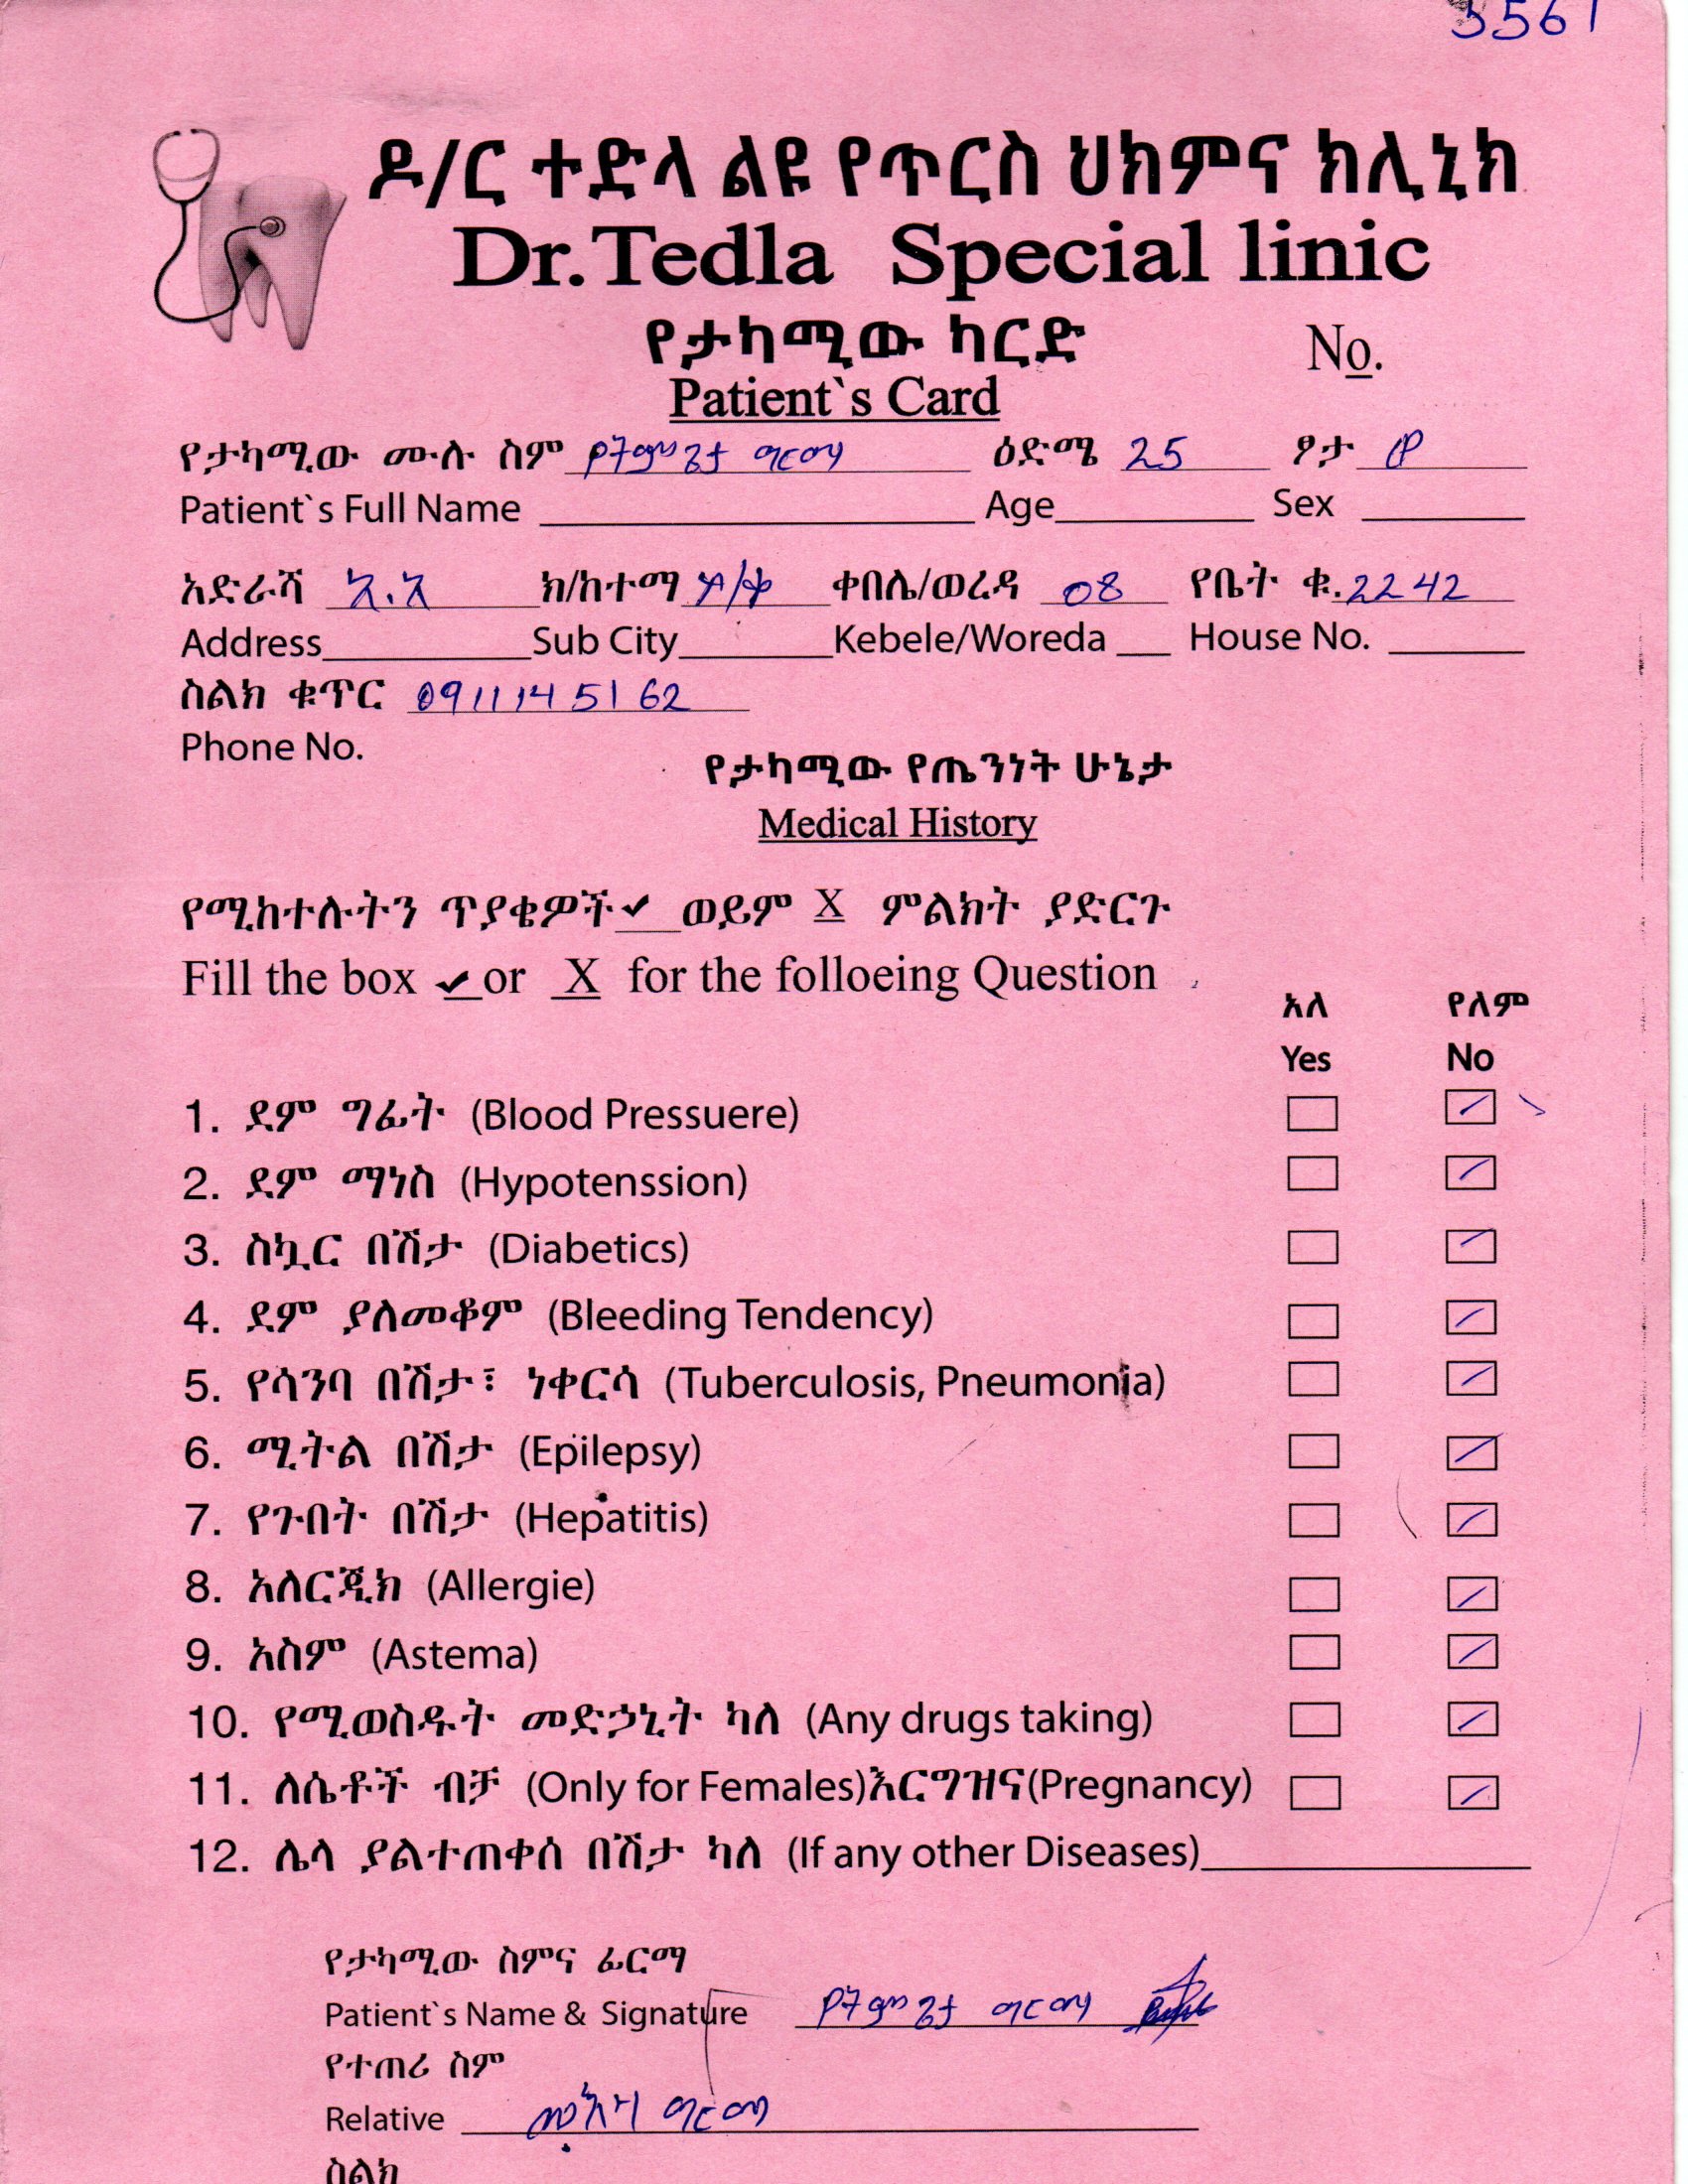 5561
ዶ/ር ተድላ ልዩ የጥርስ ህክምና ክሊኒክ
Dr.Tedla Special linic
የታካሚው ካርድ
No.
Patient`s Card
የታካሚው ሙሉ ስም የትምጌታ ግርማ ዕድሜ 25 ፆታ ወ
Patient`s Full Name Age Sex
አድራሻ አ.አ ክ/ከተማ ቀበሌ/ወረዳ 08 የቤት ቁ. 2242
Address Sub City Kebele/Woreda House No.
ስልክ ቁጥር 0911145162
Phone No.
የታካሚው የጤንነት ሁኔታ
Medical History
የሚከተሉትን ጥያቄዎች ✔ ወይም X ምልክት ያድርጉ
Fill the box ✔ or X for the folloeing Question
አለ የለም
Yes No
1. ደም ግፊት (Blood Pressuere)
2. ደም ማነስ (Hypotenssion)
3. ስኳር በሽታ (Diabetics)
4. ደም ያለመቆም (Bleeding Tendency)
5. የሳንባ በሽታ፣ ነቀርሳ (Tuberculosis, Pneumonia)
6. ሚትል በሽታ (Epilepsy)
7. የጉበት በሽታ (Hepatitis)
8. አለርጂክ (Allergie)
9. አስም (Astema)
10. የሚወስዱት መድኃኒት ካለ (Any drugs taking)
11. ለሴቶች ብቻ (Only for Females)እርግዝና(Pregnancy)
12. ሌላ ያልተጠቀሰ በሽታ ካለ (If any other Diseases)
የታካሚው ስምና ፊርማ
Patient`s Name & Signature የትምጌታ ግርማ
የተጠሪ ስም
Relative ግርማ
ስልክ